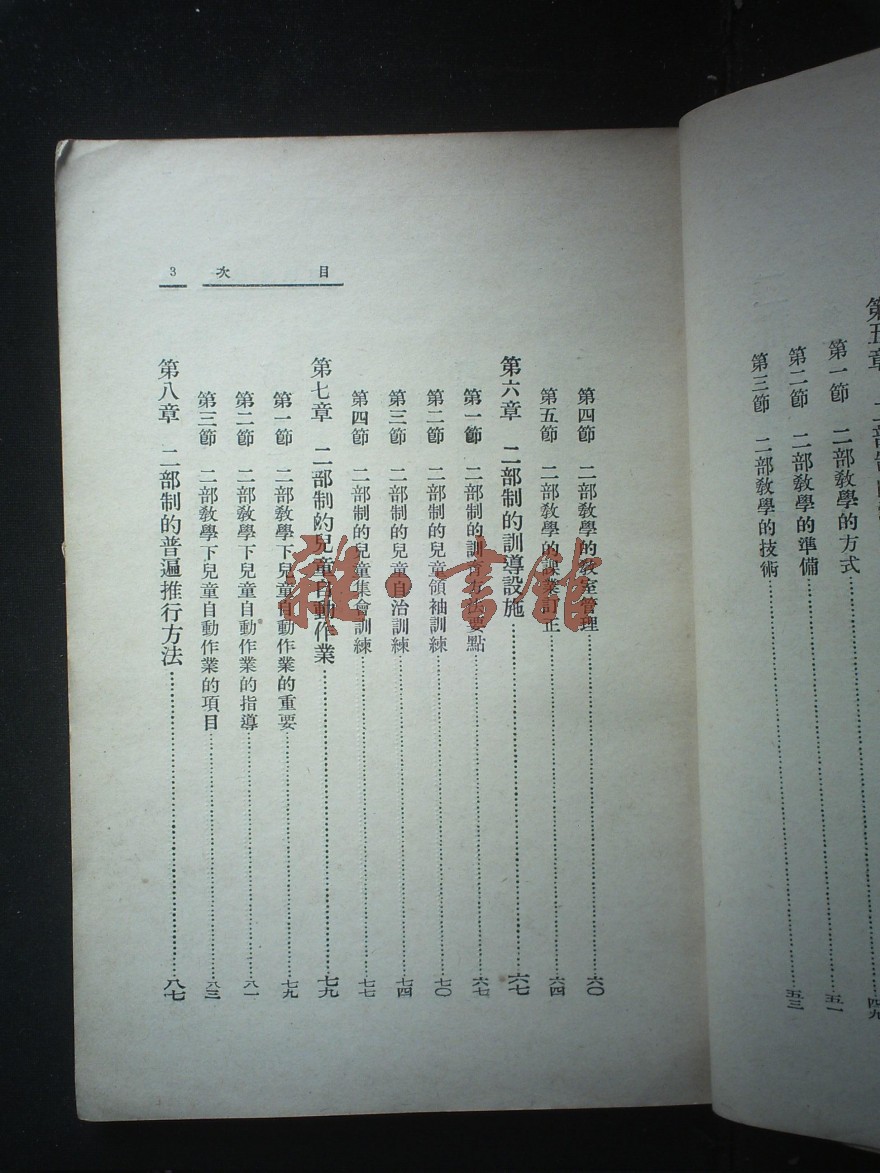 第一節 二部教學的方式
第二節 二部教學的準備……五一
第三節 二部教學的技術……五三
目次 3
第四節 二部教學的教室管理……六〇
第五節 二部教學的課業訂正……六四
第六章 二部制的訓導設施……六七
第一節 二部制的訓育方法要點……六七
第二節 二部制的兒童領袖訓練……七〇
第三節 二部制的兒童自治訓練……七四
第四節 二部制的兒童集會訓練……七七
第七章 二部制的兒童自動作業……七九
第一節 二部教學下兒童自動作業的重要……七九
第二節 二部教學下兒童自動作業的指導……八一
第三節 二部教學下兒童自動作業的項目……八三
第八章 二部制的普遍推行方法……八七
雜·書館